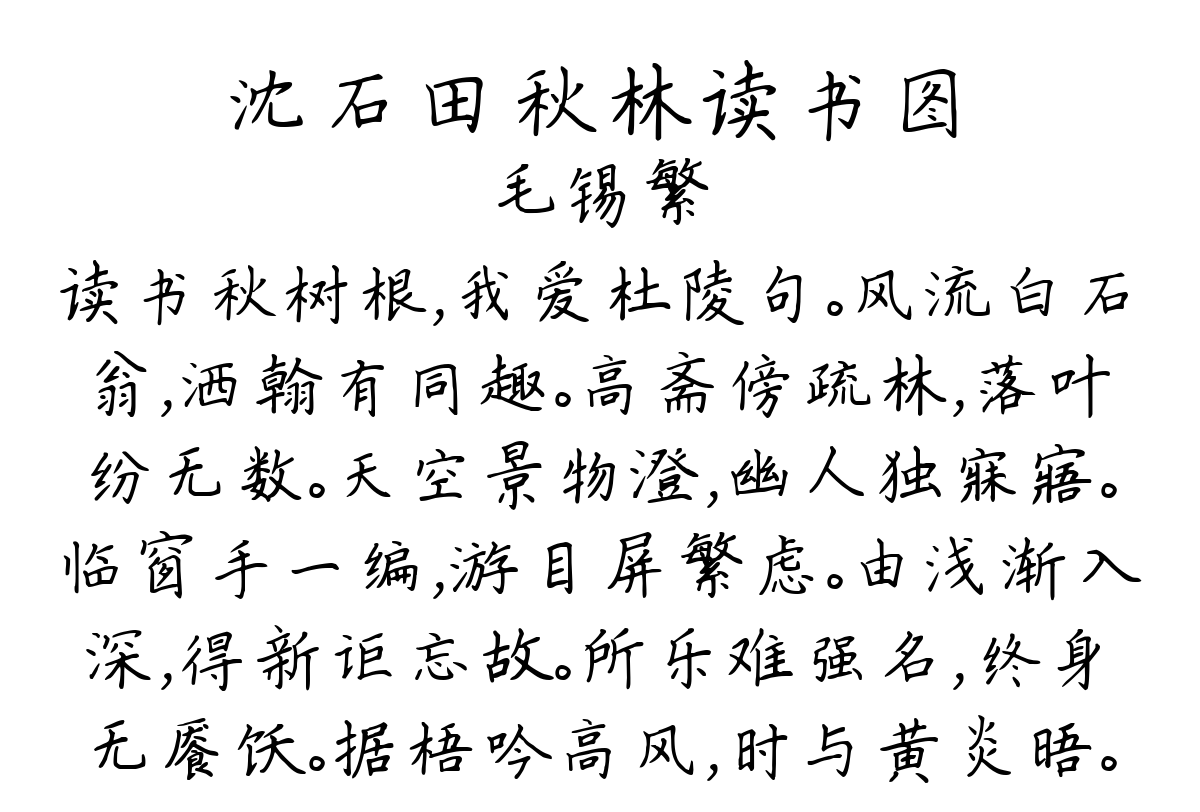 沈石田秋林读书图
毛锡繁
读书秋树根,我爱杜陵句。风流白石
翁,洒翰有同趣。高斋傍疏林,落叶
纷无数。天空景物澄,幽人独寐寤。
临窗手一编,游目屏繁虑。由浅渐入
深,得新讵忘故。所乐难强名,终身
无餍饫。据梧吟高风,时与黄炎晤。